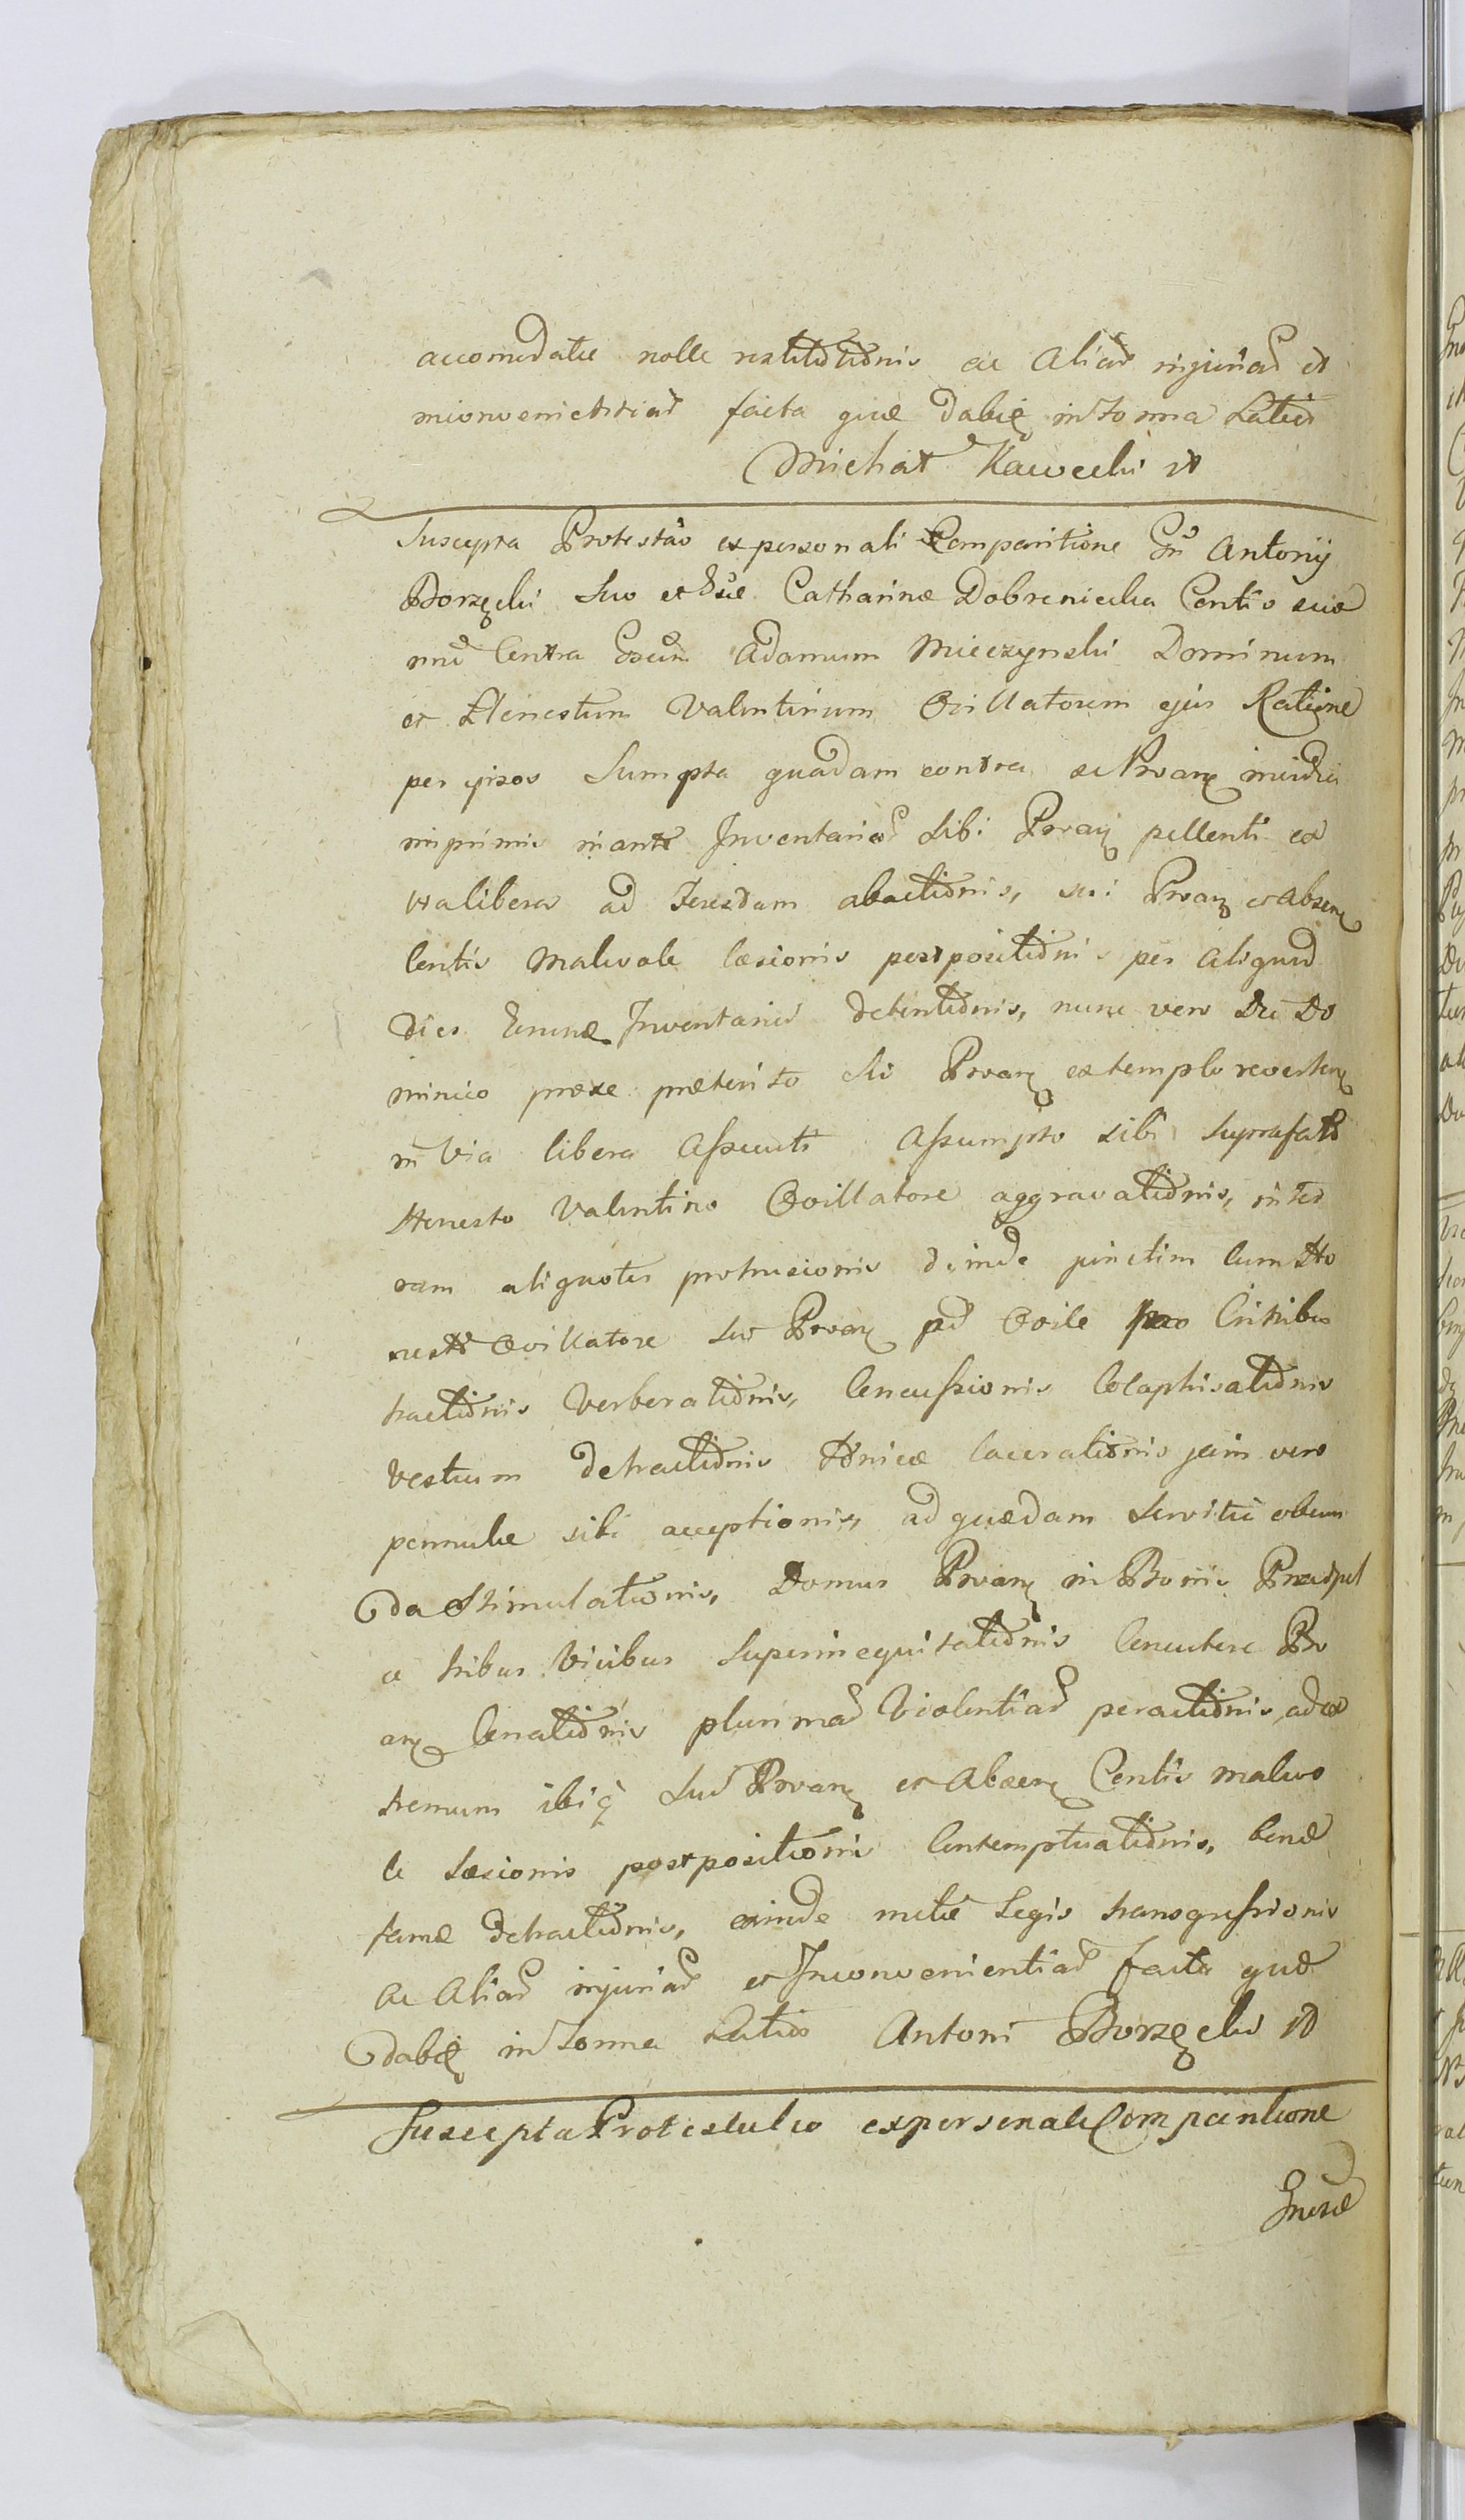 accomodatæ nolle restitutionis ac aliar injuriar et
inconvenientiar facta quæ dabit in forma Latius
Michał Kawecki
Suscepta Protestao ex personali Comparitione Gn Antonij
Borzęcki suo et Gsæ Catharinæ Dobreniecka Contis suæ
nne Contra Gsum Adamum Mieczynski Dominum
et Honestum Valentinum Ovillatorem ejus Ratione
per ipsos sumpta quadam contra se Proan invidia
imprimis Inventarior sibi Proan pellenti ex
via libera ad abactionis, sui Proan et Absen
Contis malevole læsionis postpositionis per aliquod
dies Inventarior detentionis, nunc vero Die Do
minico proxe præterito sti Proan ex templo reverten
in Via libera assecuti Assumpto sibi suprafato
Honesto Valentino Ovillatore aggravationis, in ter
ram aliquoties protrusionis deinde junctim cum Ho
nesto Ovillatore sui Proan ad Ovile pro Crinibus
tractionis Verberationis, Concussionis Colaphisationis
Vestium detractionis Tunicæ lacerationis jam vero
pennulæ sibi acceptionis, ad quædam servitii obeun
da stimulationis, Domus Proan in Bonis
a tribus Vicibus superinequitationis Concutere Pro
an Conationis plurimar Violentiar peractionis, ad ex
tremum ibiq sui Proan et Absen Contis malevo
le læsionis postpositionis Contemptuationis, bonæ
famæ detractionis, eximde metæ Legis transgressionis
Ac Aliar injuriar et Inconvenientiar facta quæ
dabit in forma Latius Antoni Borzęcki
Suscepta Protestatio ex personali Comparitione
Gnosæ